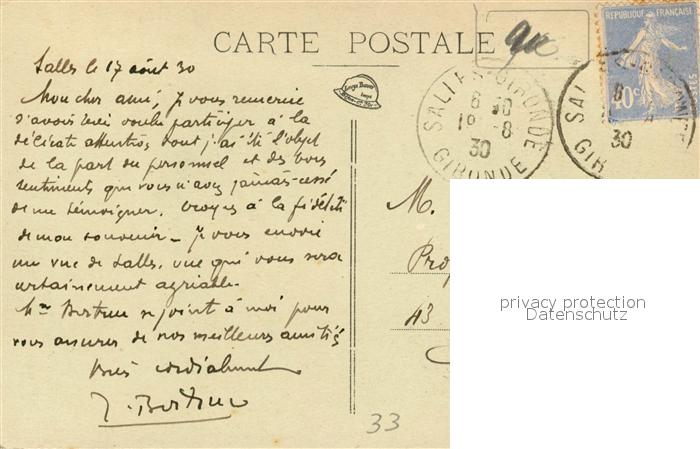 CARTE POSTALE
Salles le 17 août 30
Mon cher ami, je vous remercie
d'avoir bien voulu participer à la
délicate attention dont j'ai été l'objet
de la part du personnel et des bons
sentiments que vous n'avez jamais cessé
de me témoigner. Croyez à la fidélité
de mon souvenir - Je vous envoie
une vue de Salles, vue qui vous sera
certainement agréable.
Mme se joint à moi pour
vous assurer de nos meilleures amitiés
Bien cordialement
33
RÉPUBLIQUE FRANÇAISE
40c
GIRONDE
18-8
30
GIRONDE
30
M.
43
privacy protection
Datenschutz